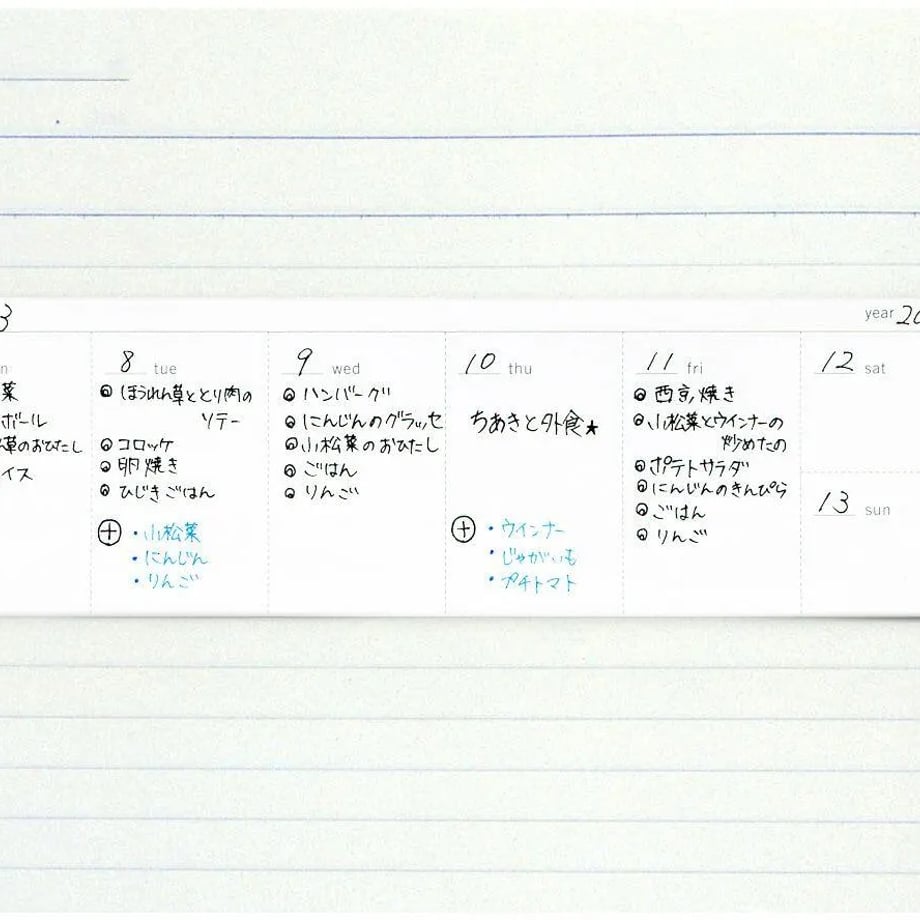 3
year 20
n
菜
ボール
草のおひたし
イス
8 tue
ほうれん草ととり肉の
ソテー
コロッケ
卵焼き
ひじきごはん
+ ・小松菜
・にんじん
・りんご
9 wed
ハンバーグ
にんじんのグラッセ
小松菜のおひたし
ごはん
りんご
10 thu
ちあきと外食★
+ ・ウインナー
・じゃがいも
・プチトマト
11 fri
西京焼き
小松菜とウインナーの
炒めたの
ポテトサラダ
にんじんのきんぴら
ごはん
りんご
12 sat
13 sun